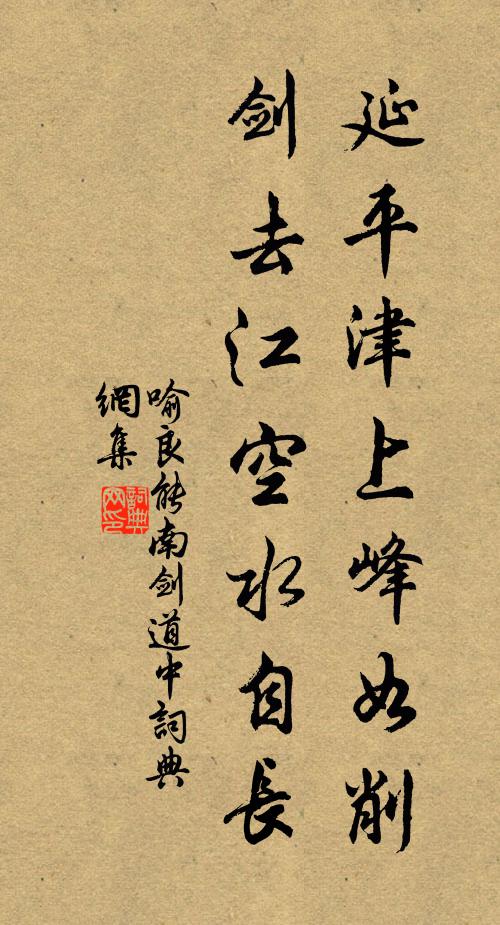 延平津上峰如削
剑去江空水自長
喻良能南剑道中詞典
網集
詞典
网印